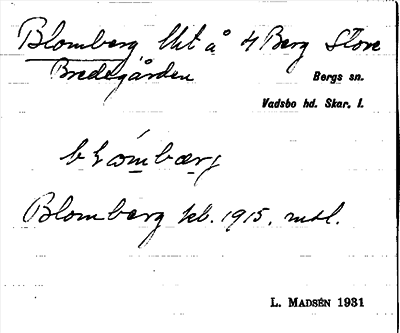 Blomberg, lht å 4 Berg Store
Bredegården
Bergs sn.
Vadsbo hd. Skar. l.
Blomberg kb. 1915. mtl.
L. MADSÉN 1931